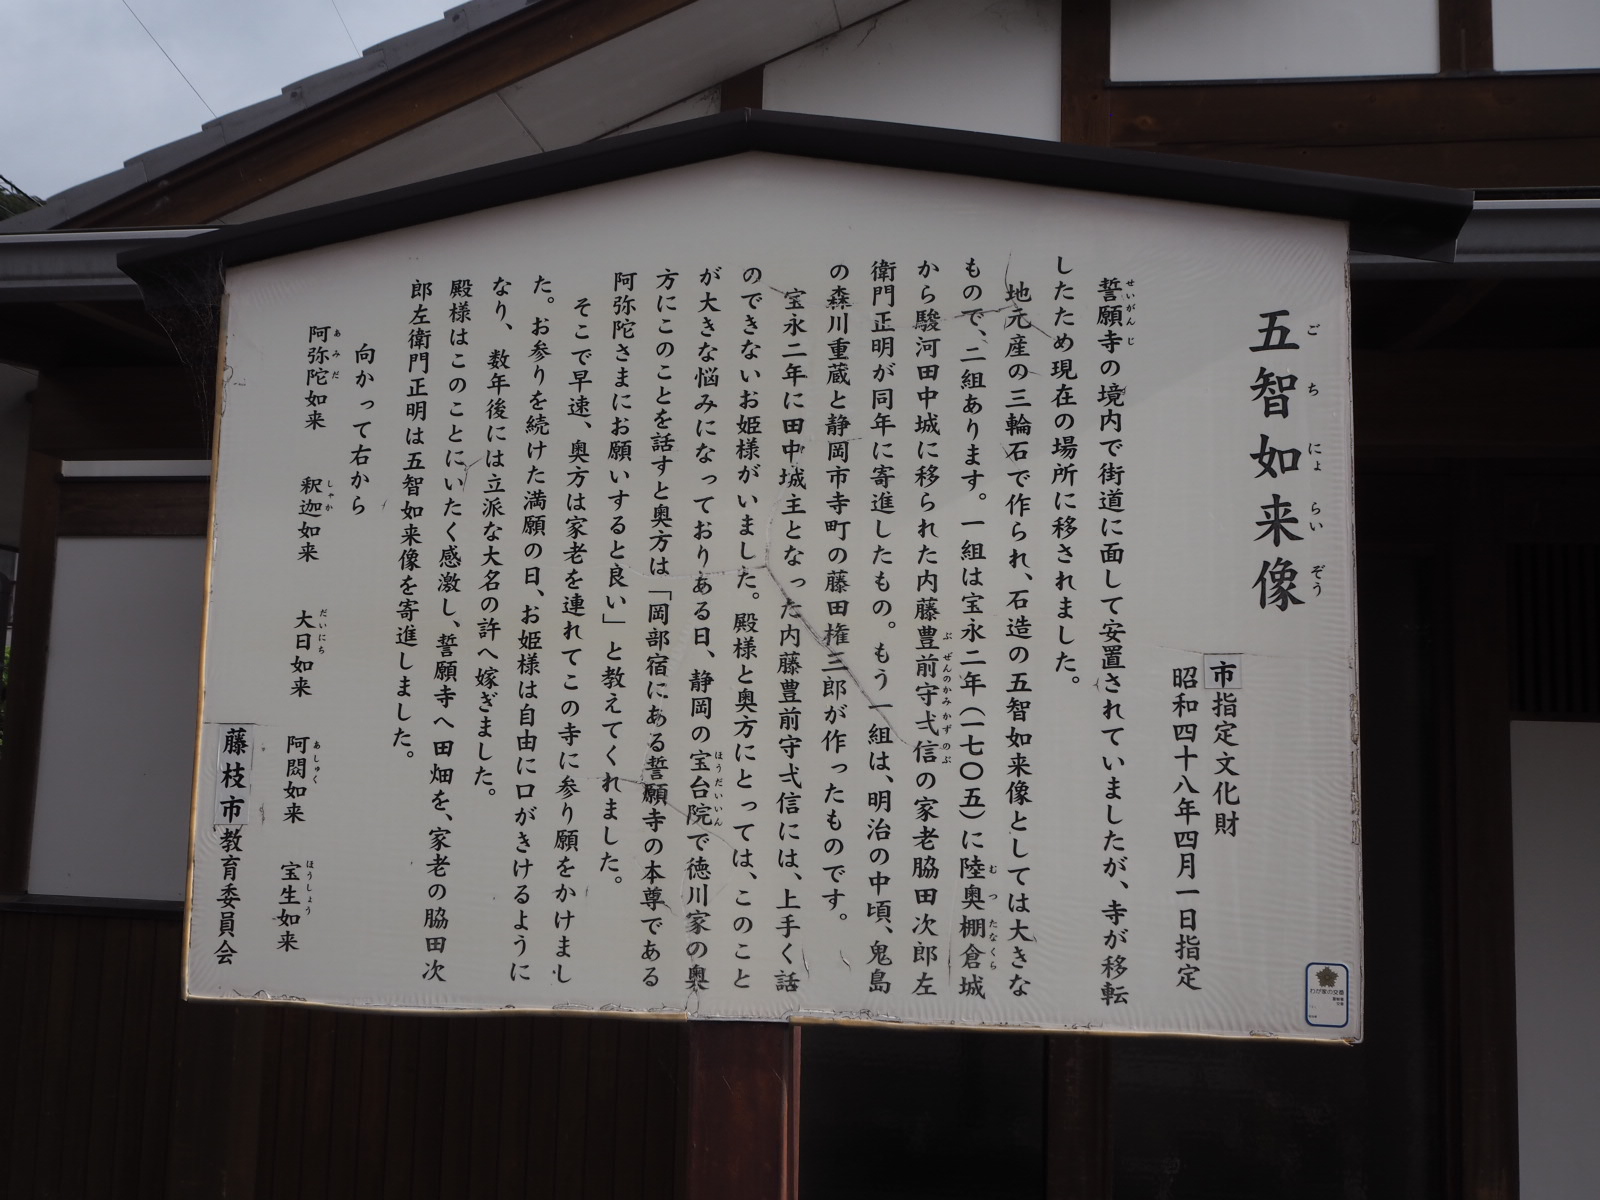 五智如来像
市指定文化財
昭和四十八年四月一日指定
誓願寺の境内で街道に面して安置されていましたが、寺が移転
したため現在の場所に移されました。
地元産の三輪石で作られ、石造の五智如来像としては大きな
もので、二組あります。一組は宝永二年(一七〇五)に陸奥棚倉城
から駿河田中城に移られた内藤豊前守弌信の家老脇田次郎左
衛門正明が同年に寄進したもの。もう一組は、明治の中頃、鬼島
の森川重蔵と静岡市寺町の藤田権三郎が作ったものです。
宝永二年に田中城主となった内藤豊前守弌信には、上手く話
のできないお姫様がいました。殿様と奥方にとっては、このこと
が大きな悩みになっておりある日、静岡の宝台院で徳川家の奥
方にこのことを話すと奥方は「岡部宿にある誓願寺の本尊である
阿弥陀さまにお願いすると良い」と教えてくれました。
そこで早速、奥方は家老を連れてこの寺に参り願をかけまし
た。お参りを続けた満願の日、お姫様は自由に口がきけるように
なり、数年後には立派な大名の許へ嫁ぎました。
殿様はこのことにいたく感激し、誓願寺へ田畑を、家老の脇田次
郎左衛門正明は五智如来像を寄進しました。
向かって右から
阿弥陀如来 釈迦如来 大日如来 阿閦如来 宝生如来
藤枝市教育委員会
わが家の交番